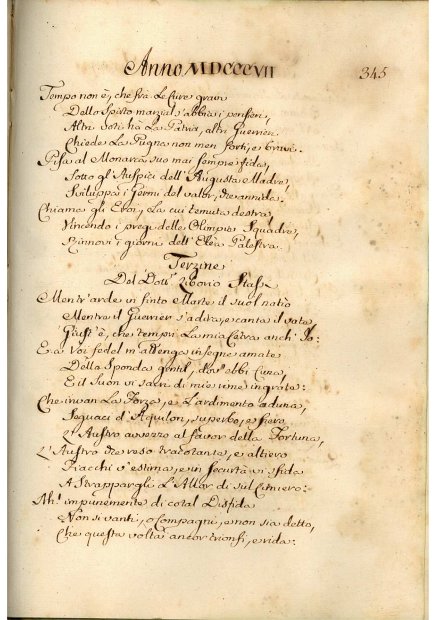 Anno MDCCCVII
345
Tempo non è, che frà le cure gravi
Dello Spirto marzial s'abbia i pensieri,
Altri voti hà la Patria, altri Guerrieri
Chiede la Pugna non men forti, e bravi.
Pisa al Monarca suo mai sempre fida,
Sotto gli Auspicj dell'Augusta Madre,
Sviluppa i germi del valor, che annida.
Chiama gli Eroi, la cui temuta destra,
Vincendo i pregi delle Olimpie Squadre,
Rinnovi i giorni dell'Elèa Palestra.
Terzine
Del Dott.r Liborio
Mentr'arde in finto Marte il suol natio
Mentre il Guerrier s'adira, e canta il vate
Giust'è, che tempri la mia Cetra anch'Io:
E a Voi fedel m'attengo insegne amate
Della Sponda gentil, dov'ebbi Cuna,
E il Suon vi sacri di mie rime ingrate:
Che invan la Forza, e l'ardimento aduna,
Seguaci d'Aquilon, superbo, e fiero
L'Austro avvezzo al favor della Fortuna,
L'Austro che reso tracotante, e altiero
Fiacchi v'estima, e in securtà vi sfida
A Strappargli l'Allor di sul Cimiero:
Ah! impunemente di cotal Disfida
Non si vanti, o Compagni, e non sia detto,
Che questa volta ancor trionfi, e rida.